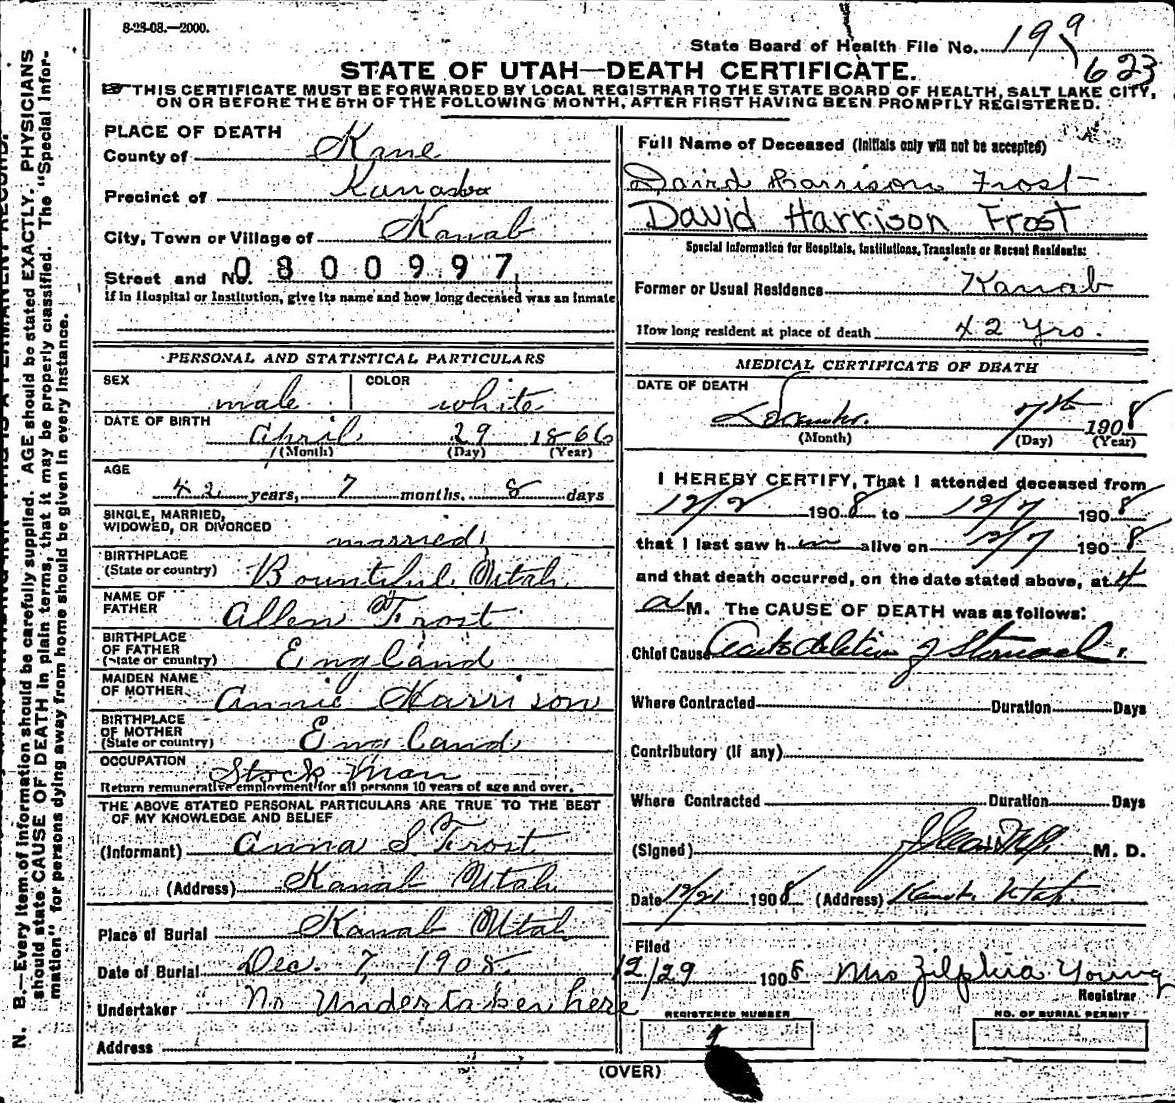 8-28-08.—2000.
State Board of Health File No. 199
623
STATE OF UTAH—DEATH CERTIFICATE.
THIS CERTIFICATE MUST BE FORWARDED BY LOCAL REGISTRAR TO THE STATE BOARD OF HEALTH, SALT LAKE CITY,
ON OR BEFORE THE 5TH OF THE FOLLOWING MONTH, AFTER FIRST HAVING BEEN PROMPTLY REGISTERED.
PLACE OF DEATH
County of Kane
Precinct of
City, Town or Village of Kanab
Street and No. 0800997
If in Hospital or Institution, give its name and how long deceased was an inmate
PERSONAL AND STATISTICAL PARTICULARS
SEX male COLOR white
DATE OF BIRTH April 29 1866
(Month) (Day) (Year)
AGE
42 years, 7 months, 8 days
SINGLE, MARRIED,
WIDOWED, OR DIVORCED married
BIRTHPLACE
(State or country) Bountiful Utah
NAME OF
FATHER Allen Frost
BIRTHPLACE
OF FATHER
(State or country) England
MAIDEN NAME
OF MOTHER Annie Harrison
BIRTHPLACE
OF MOTHER
(State or country) England
OCCUPATION Stock Man
Return remunerative employment for all persons 10 years of age and over.
THE ABOVE STATED PERSONAL PARTICULARS ARE TRUE TO THE BEST
OF MY KNOWLEDGE AND BELIEF
(Informant) Anna S Frost
(Address) Kanab Utah
Place of Burial Kanab Utah
Date of Burial Dec. 7, 1908
Undertaker No Undertaker here
Address
Full Name of Deceased (Initials only will not be accepted)
David Harrison Frost
David Harrison Frost
Special Information for Hospitals, Institutions, Transients or Recent Residents:
Former or Usual Residence Kanab
How long resident at place of death 42 yrs.
MEDICAL CERTIFICATE OF DEATH
DATE OF DEATH
December 7th 1908
(Month) (Day) (Year)
I HEREBY CERTIFY, That I attended deceased from
12/2 1908 to 12/7 1908
that I last saw him alive on 12/7 1908
and that death occurred, on the date stated above, at 4
a M. The CAUSE OF DEATH was as follows:
Chief Cause Acute dilation of Stomach
Where Contracted Duration Days
Contributory (if any)
Where Contracted Duration Days
(Signed) M. D.
Date 12/21 1908 (Address) Kanab Utah
Filed
12/29 1908 Mrs Zilphia Young
Registrar
REGISTERED NUMBER
NO. OF BURIAL PERMIT
(OVER)
N. B.—Every item of information should be carefully supplied. AGE should be stated EXACTLY. PHYSICIANS
should state CAUSE OF DEATH in plain terms, that it may be properly classified. The "Special Infor-
mation" for persons dying away from home should be given in every instance.